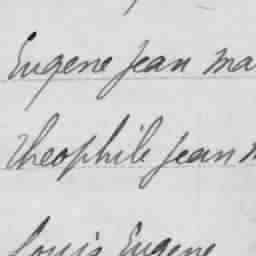 Eugene Jean ma
Theophile Jean
Louis Eugene